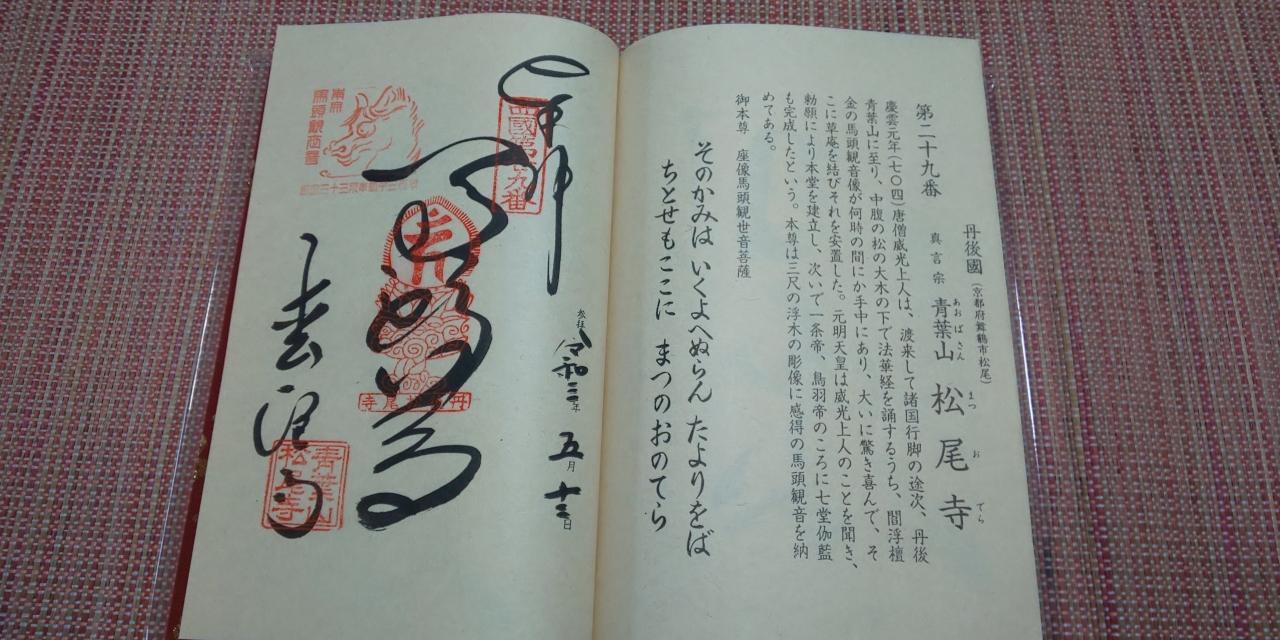 第二十九番
丹後國（京都府舞鶴市松尾）
真言宗 青葉山 松尾寺
あおばさん
まつ お でら
慶雲元年（七〇四）唐僧威光上人は、渡来して諸国行脚の途次、丹後
青葉山に至り、中腹の松の大木の下で法華経を誦するうち、閻浮檀
金の馬頭観音像が何時の間にか手中にあり、大いに驚き喜んで、そ
こに草庵を結びそれを安置した。元明天皇は威光上人のことを聞き、
勅願により本堂を建立し、次いで一条帝、鳥羽帝のころに七堂伽藍
も完成したという。本尊は三尺の浮木の彫像に感得の馬頭観音を納
めてある。
御本尊 座像馬頭観世音菩薩
そのかみは いくよへぬらん たよりをば
ちとせもここに まつのおのてら
参拝 令和三年 五月 十三日
奉拝
西國第廿九番
馬頭観音
松尾寺
青葉山
松尾寺